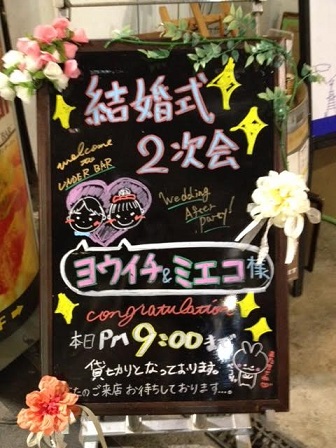 結婚式
2次会
welcome
to
UNDER BAR
Wedding
After
Party!
ヨウイチ&ミエコ様
congratulation
本日PM9:00まで
貸切りとなっております。
たのご来店お待ちしております...。